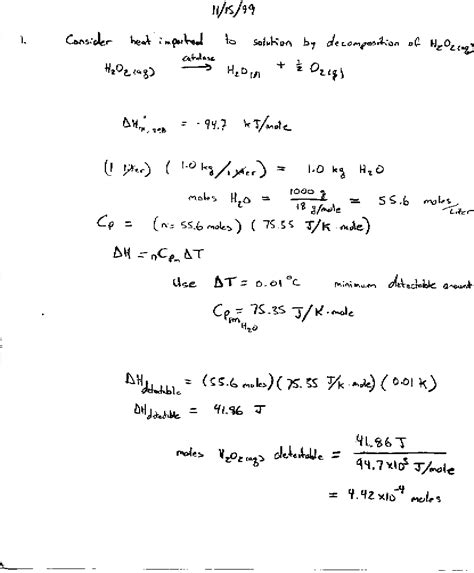 11/15/99
1. Consider heat imparted to solution by decomposition of H2O2(aq)
H2O2(aq) catalase → H2O(l) + ½ O2(g)
ΔH°rx, 298 = -94.7 kJ/mole
(1 liter) (1.0 kg/liter) = 1.0 kg H2O
moles H2O = 1000 g / 18 g/mole = 55.6 moles/Liter
Cp = (n = 55.6 moles) (75.35 J/K·mole)
ΔH = nCpm ΔT
Use ΔT = 0.01 °C minimum detectable amount
Cpm H2O = 75.35 J/K·mole
ΔH detectable = (55.6 moles) (75.35 J/K·mole) (0.01 K)
ΔH detectable = 41.86 J
moles H2O2(aq) detectable = 41.86 J / 94.7×10³ J/mole
= 4.42 ×10⁻⁴ moles